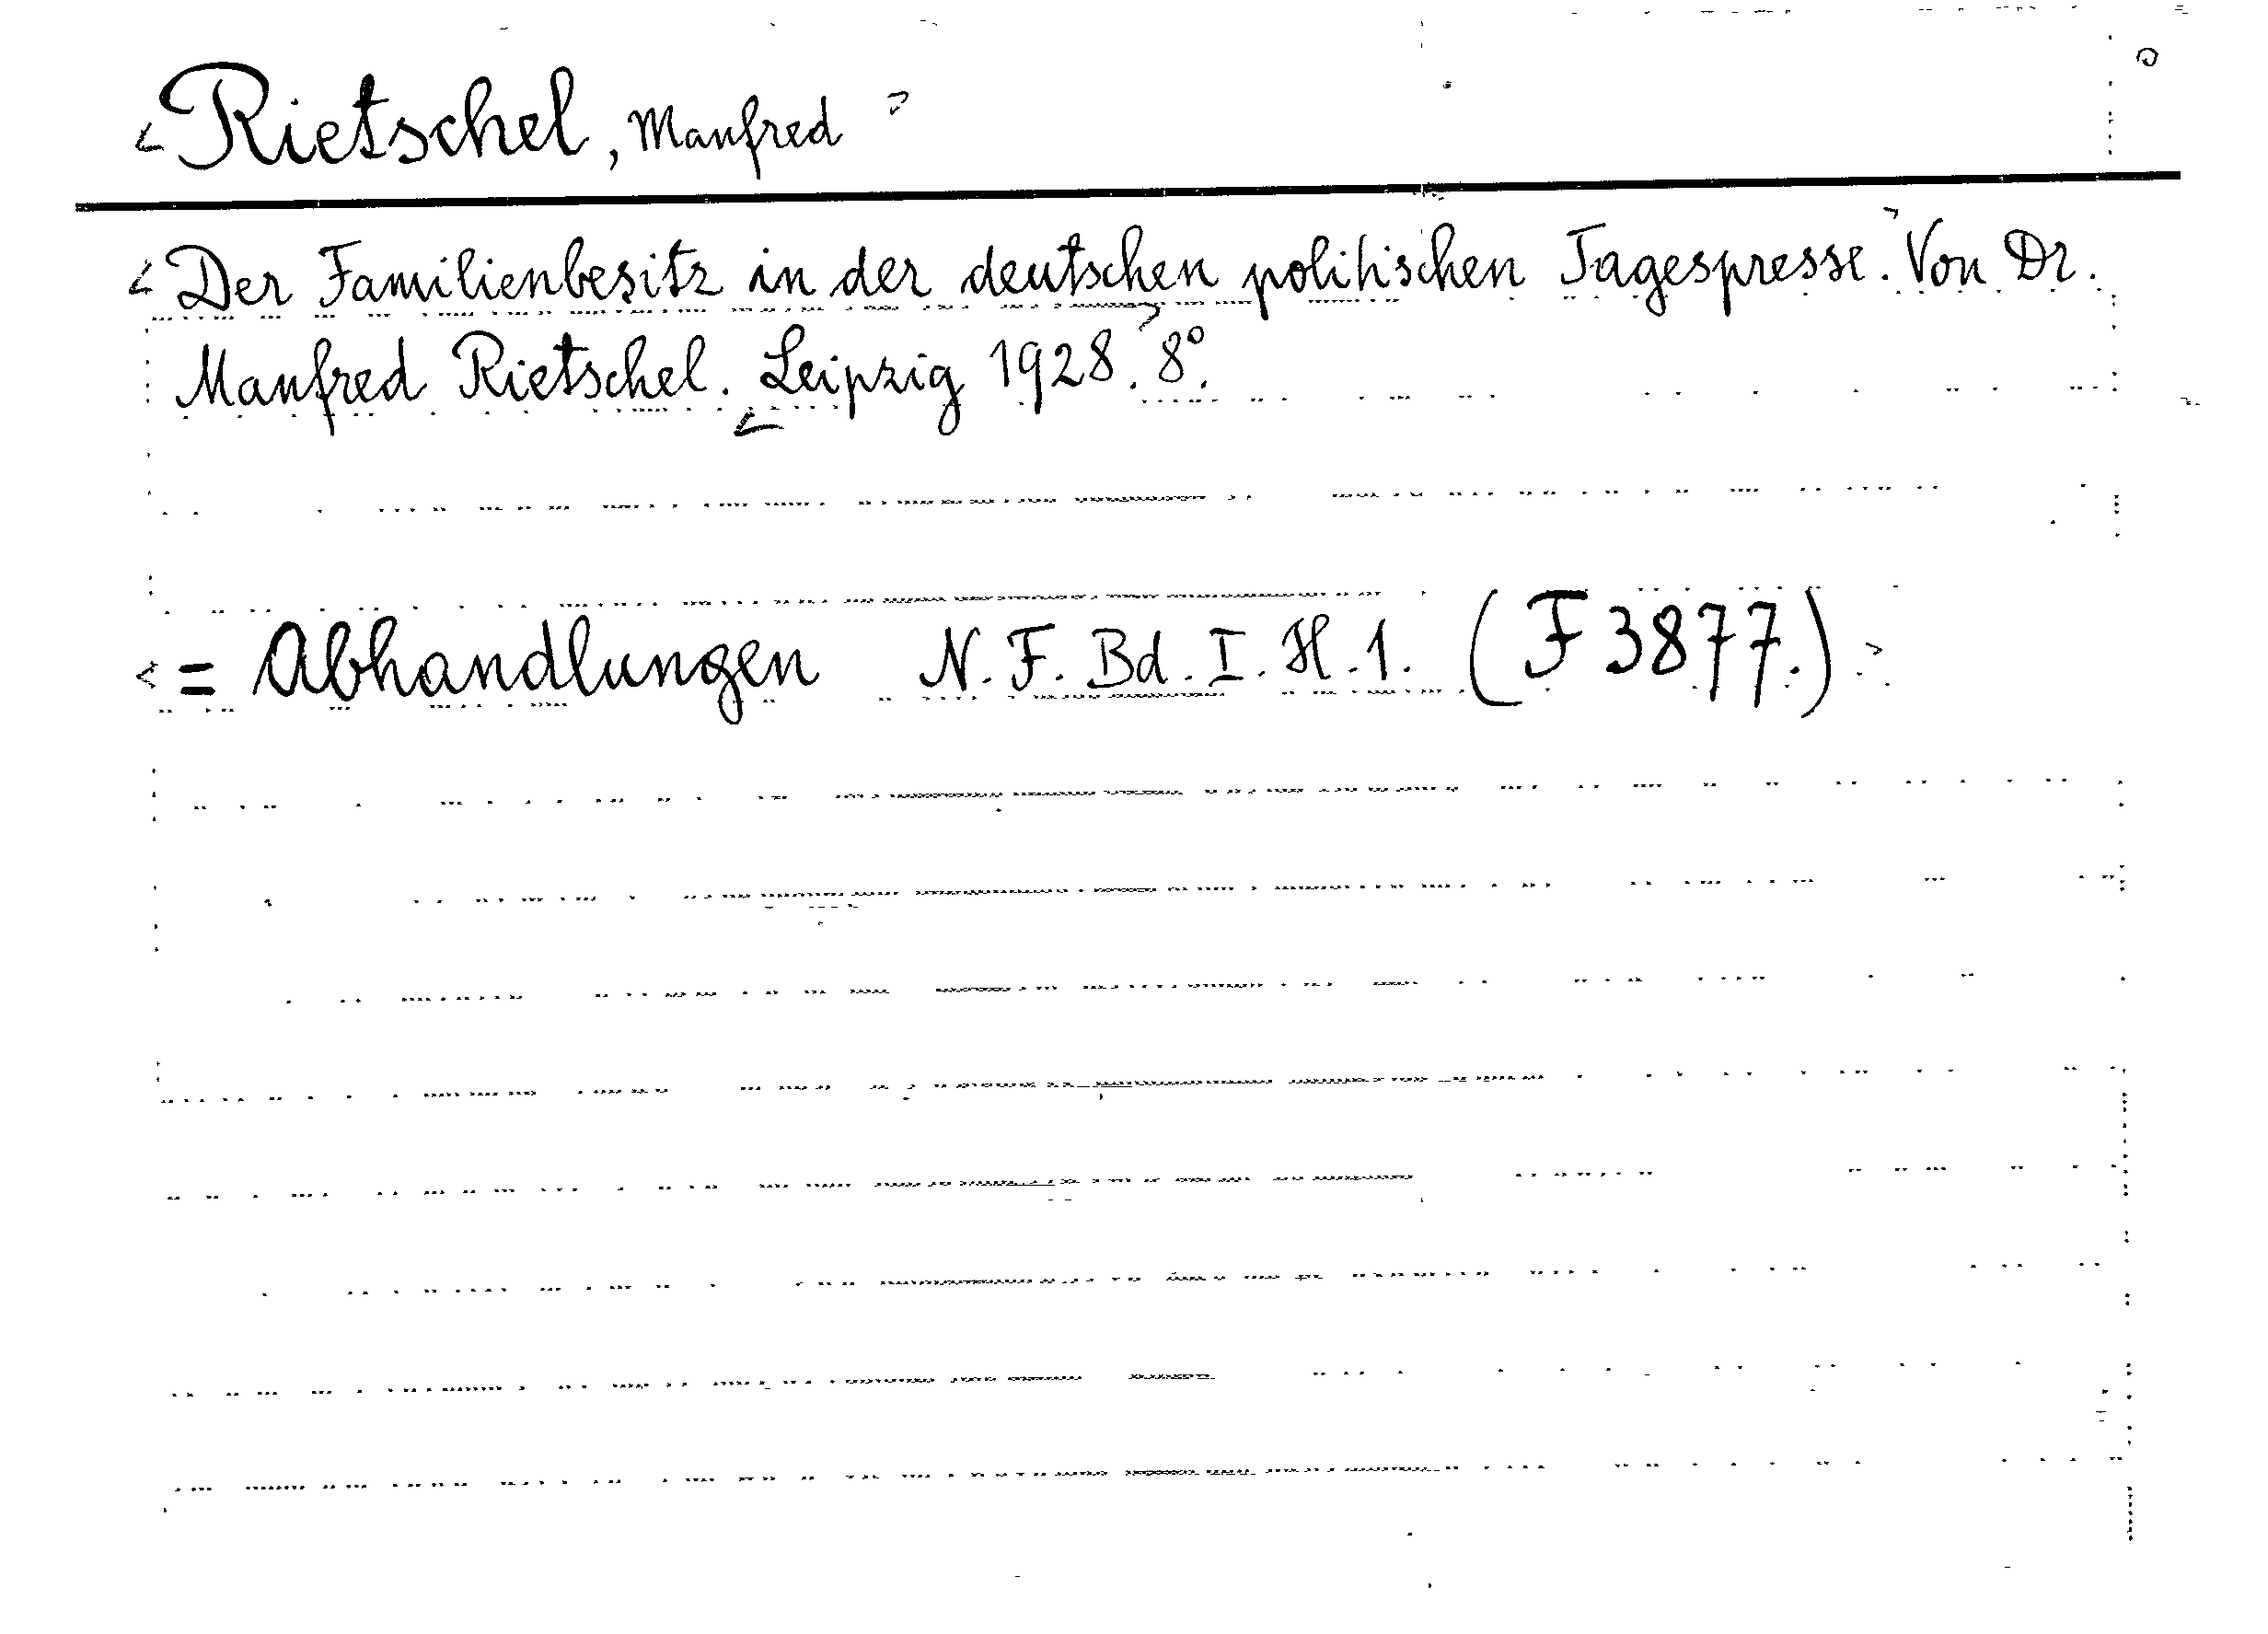 <Rietschel, Manfred>
<Der Familienbesitz in der deutschen politischen Tagespresse.> Von Dr.
Manfred Rietschel. <Leipzig 1928.> 8°.
<= Abhandlungen N. F. Bd. I. H. 1. (F 3877.)>